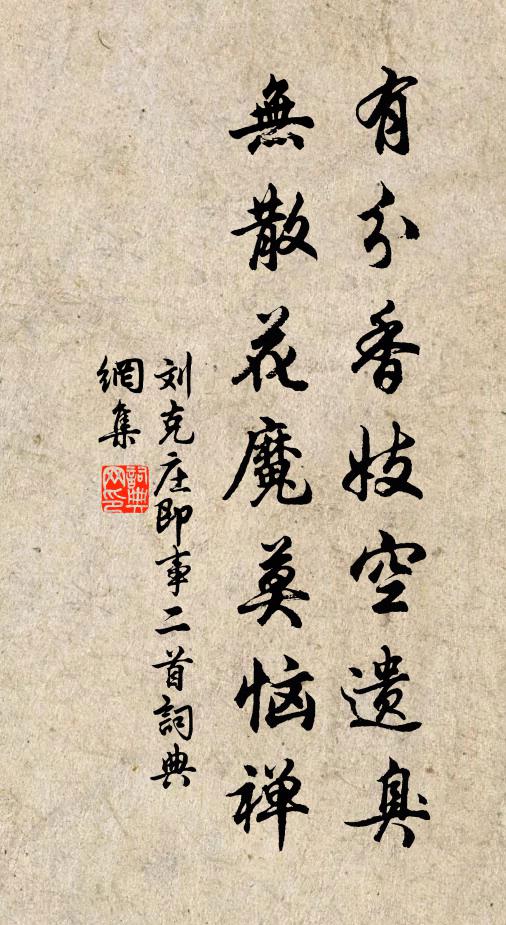 有分香妓空遗臭
無散花魔莫恼禅
刘克庄即事二首詞典
網集
詞典
网印